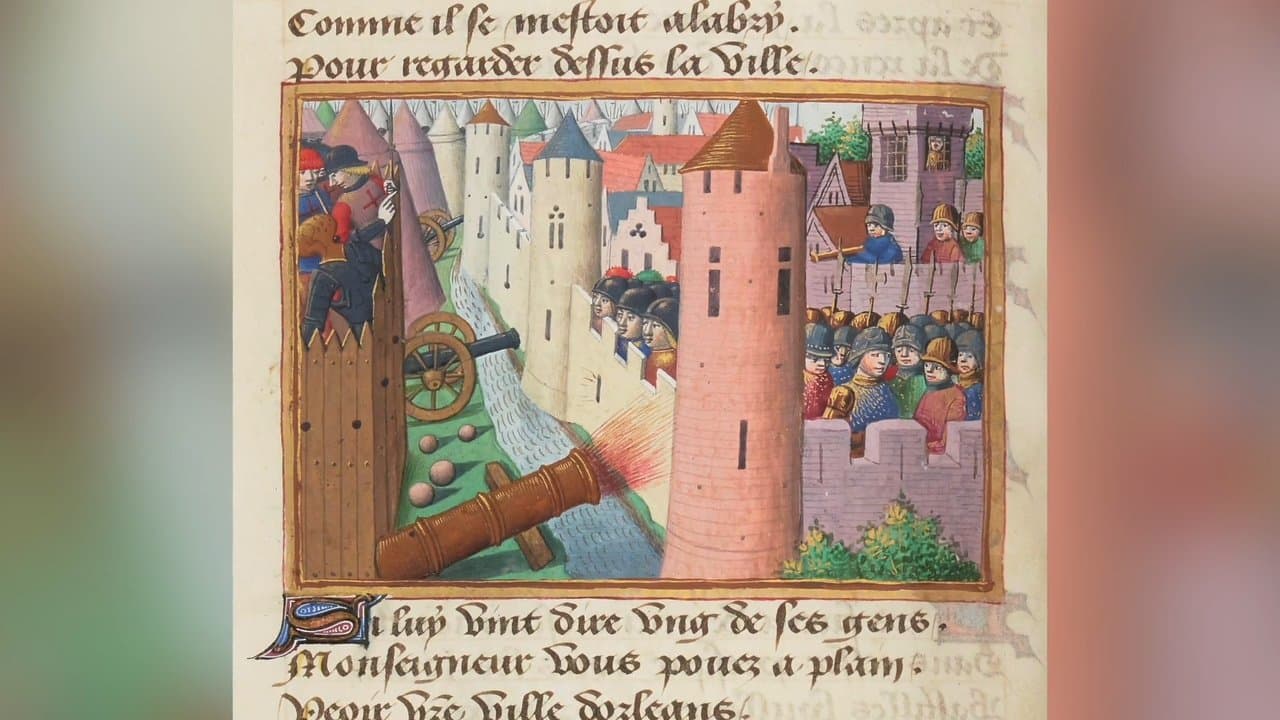 Comme il se mestoit alabry.
Pour regarder dessus la ville.
Si luy vint dire vng de ses gens.
Monseigneur vous pouez a plain.
Veoir vr̄e ville dorleans.